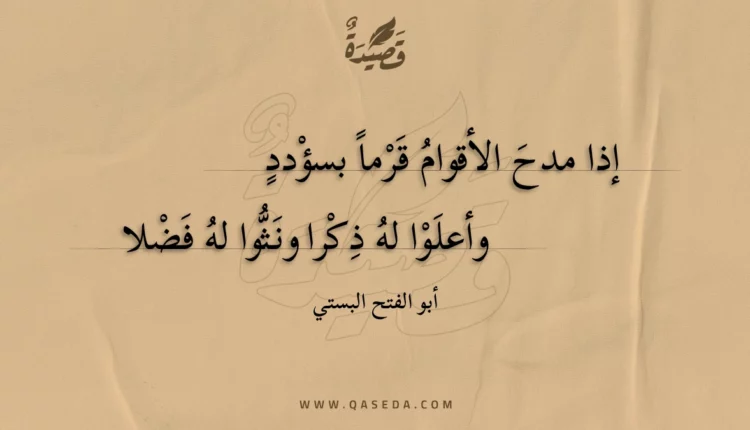 قَصِيدَةٌ
إذا مدحَ الأقوامُ قَرْماً بسؤْددٍ
وأعلَوْا لهُ ذِكْرا ونَثُّوا لهُ فَضْلا
أبو الفتح البستي
WWW.QASEDA.COM